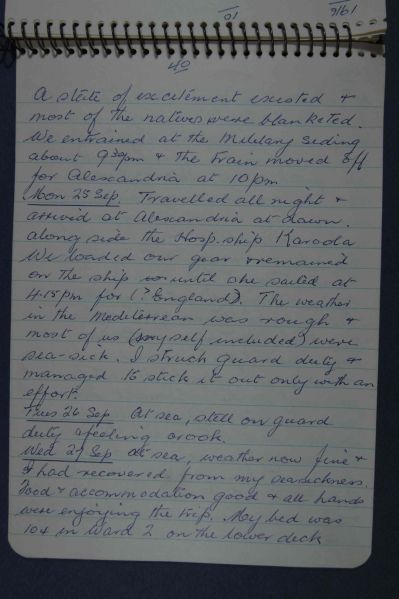 40
A state of excitement existed +
most of the natives were blanketed.
We entrained at the Military Siding
about 9 30pm + the train moved off
for Alescandria at 10 pm
Mon 25 Sep. Travelled all night +
arrived at Alescandria at dawn.
along side the Hosp. ship Karoola
We loaded our gear + remained
on the ship until she sailed at
4.15pm for (? England). The weather
in the Mediterrean was rough +
most of us (myself included) were
sea-sick. I struck guard duty +
managed to stick it out only with an
effort.
Tues 26 Sep At sea, still on guard
duty + feeling crook.
Wed 27 Sep At sea, weather now fine +
I had recovered from my seasickness.
Food + accommodation good + all hands
were enjoying the trip. My bed was
104 in Ward 2 on the lower deck